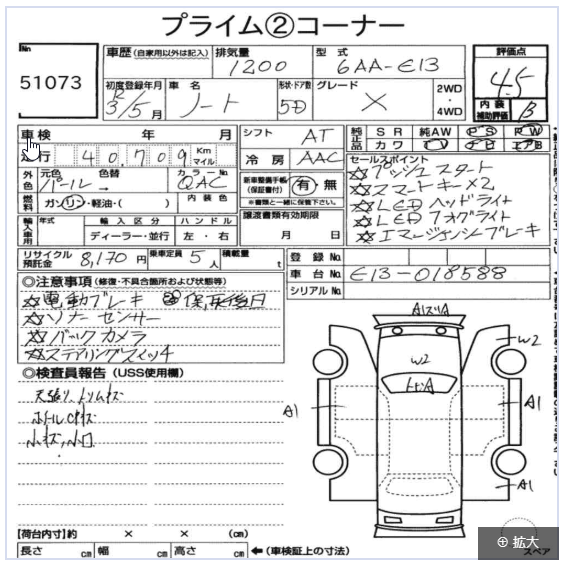 プライム②コーナー
No
51073
車歴 (自家用以外は記入) 排気量 型式
1200 6AA-E13
初度登録年月 車名 形状・ドア数 グレード 2WD・4WD
R3/5月 ノート 5D X
評価点
4.5
内装補助評価 B
車検 年 月
走行 40,709 Km マイル
シフト AT
冷房 AAC
純正品 SR 純AW PS PW
カワ TV ナビ エアB
外色 元色 色替 カラーNo.
パール QAC
燃料 ガソリン・軽油・( ) 内装色
新車整備手帳 (保証書付) 有・無
※書類と一緒に保管下さい。
セールスポイント
☆プッシュスタート
☆スマートキー×2
☆LEDヘッドライト
☆LEDフォグライト
☆エマージェンシーブレーキ
輸入車用 年式 輸入区分 ハンドル
ディーラー・並行 左・右
譲渡書類有効期限
月 日
リサイクル預託金 8,170円 乗車定員 5人 積載量 t
登録No.
車台No. E13-018588
シリアルNo.
◎注意事項 (修復・不具合箇所および状態等)
☆電動ブレーキ
☆ソナーセンサー
☆バックカメラ
☆ステアリングスイッチ
◎検査員報告 (USS使用欄)
天張リ、トリムキズ
小キズ、小凹
A1スリA
W2
W2
トビA
A1
A1
A1
【荷台内寸】約 × × (cm)
長さ cm 幅 cm 高さ cm ←(車検証上の寸法)
スペア
拡大